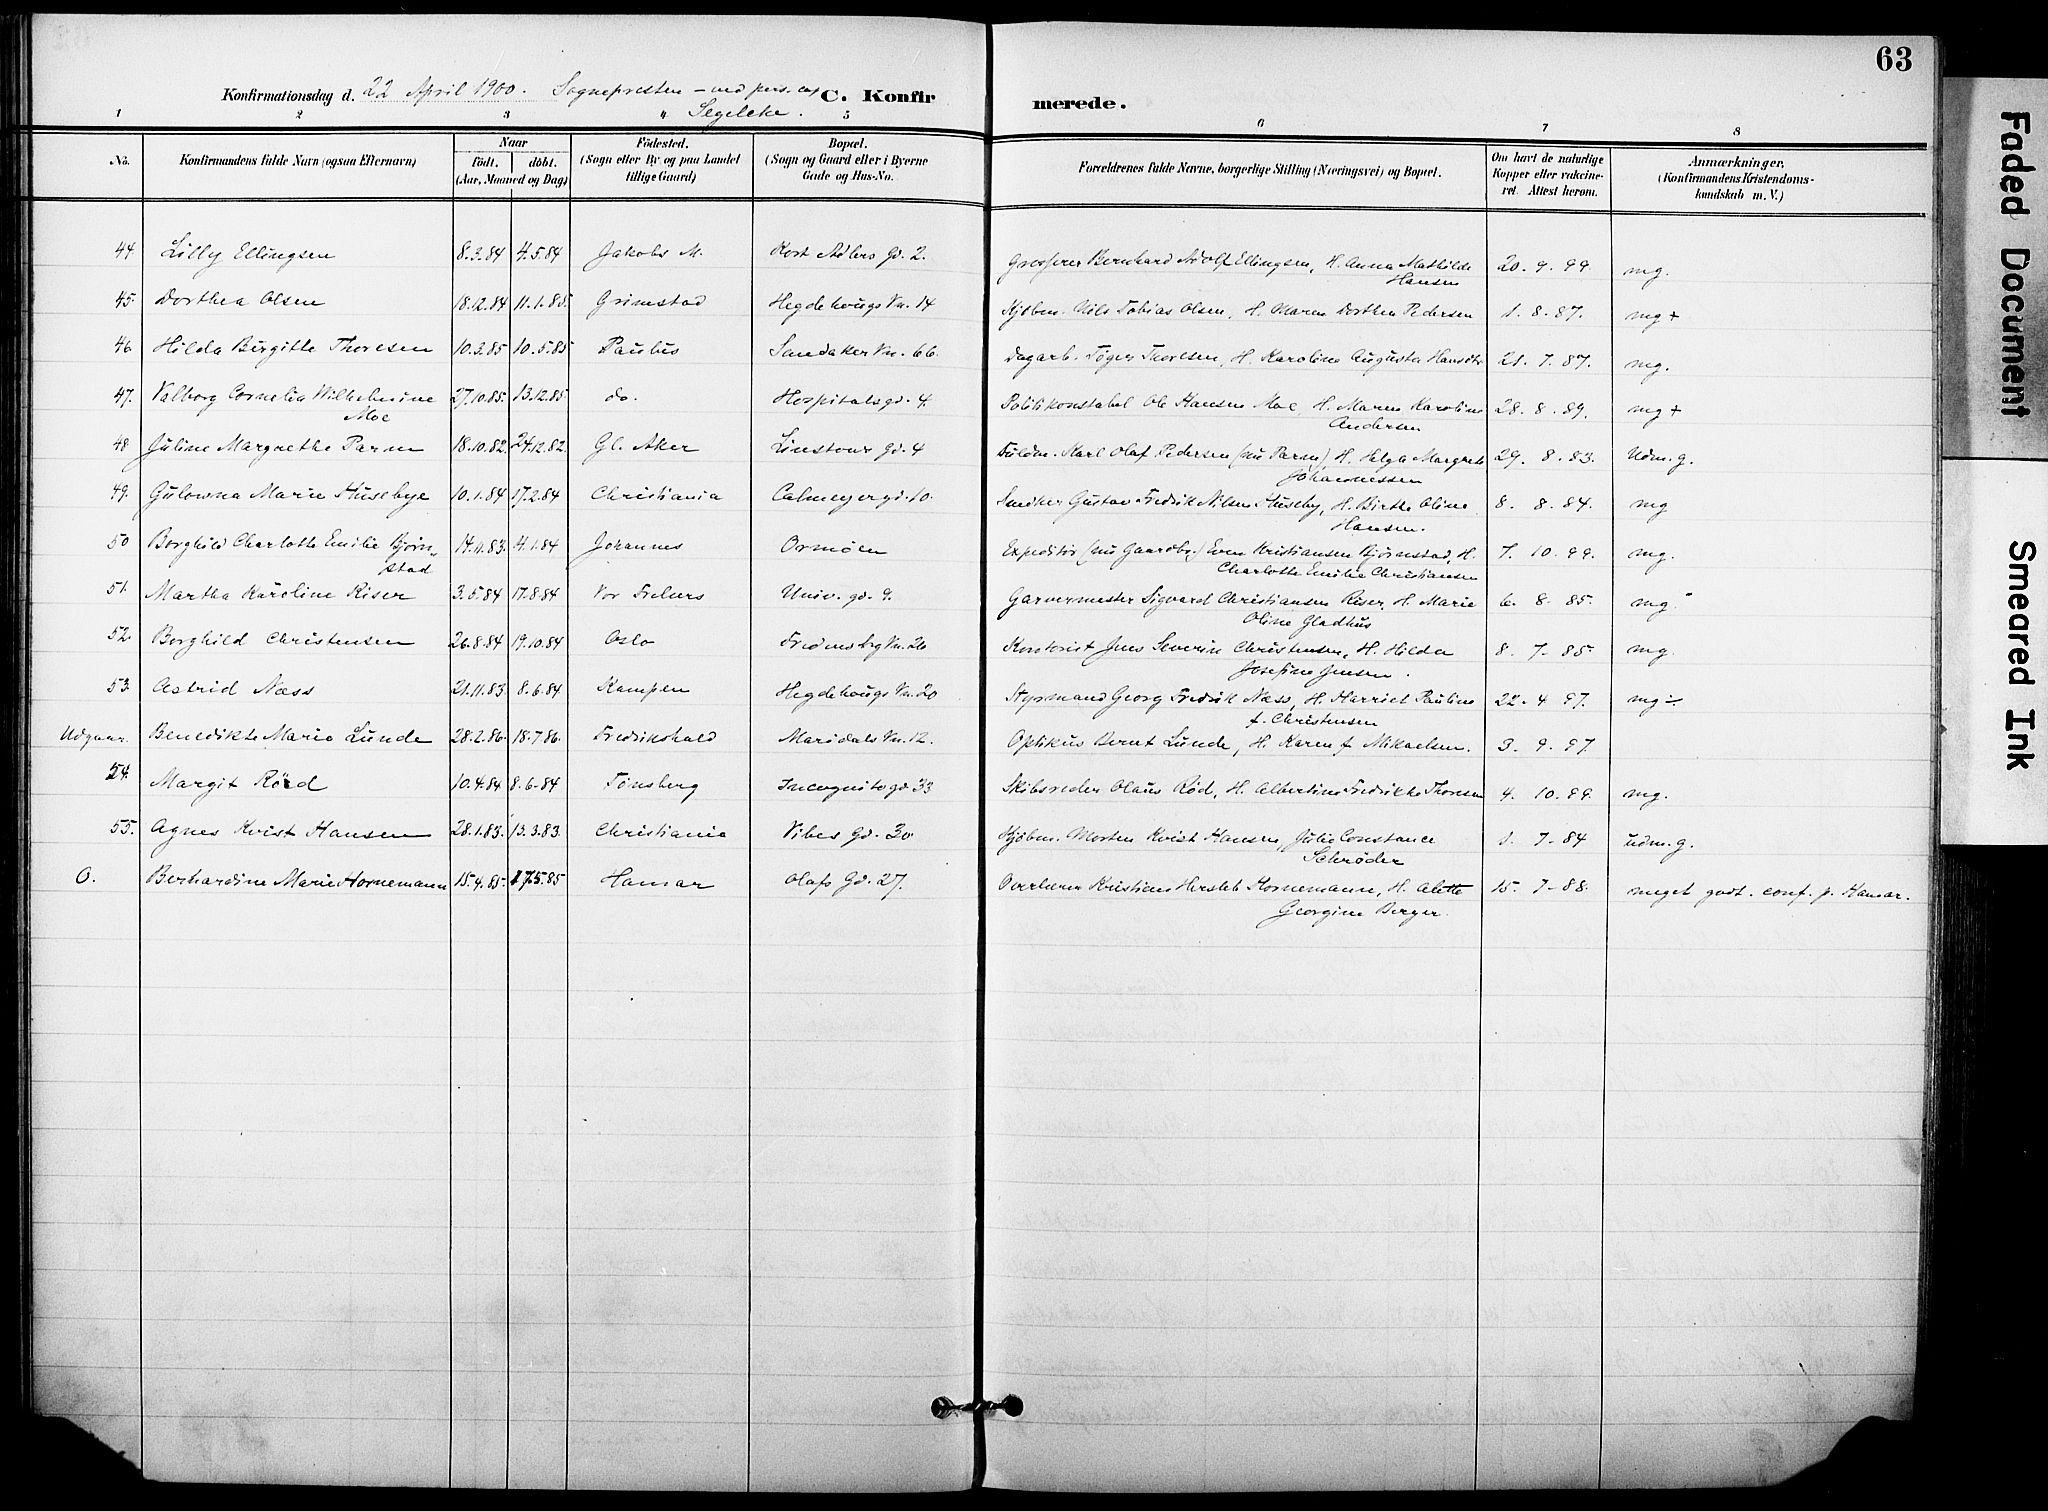 63
Konfirmationsdag d. 22 April 1900. Sognepresten - ved pers. cap. C. Konfirmerede.
Segelcke.
1 2 3 4 5 6 7 8
No. Konfirmandens fulde Navn (ogsaa Efternavn) Naar født. døbt. (Aar, Maaned og Dag) Födested. (Sogn eller By og paa Landet tillige Gaard) Bopæl. (Sogn og Gaard eller i Byerne Gade og Hus-No. Forældrenes fulde Navne, borgerlige Stilling (Næringsvei) og Bopæl. Om havt de naturlige Kopper eller vakcineret. Attest herom. Anmærkninger. (Konfirmandens Kristendomskundskab m. V.)
44 Lilly Ellingsen 8.3.84 4.5.84 Jakobs M. Kort Adlers Gd. 2. Grosserer Bernhard Adolf Ellingsen, H. Anna Mathilde Hansen 20. 9. 99. mg.
45. Dorthea Olsen 18.12.84 11.1.85. Grimstad Hegdehougs Vn. 14 Kjøbm. Nils Tobias Olsen, H. Maren Dorthea Pedersen 1. 8. 87. mg +
46. Hilda Birgitte Thoresen 10.3.85 10.5.85 Paulus Sandaker Vn. 66. Dagarb. Tøger Thoresen, H. Karoline Augusta Hansdtr 21. 7. 87. mg.
47. Valborg Cornelia Wilhelmine Moe 27.10.85. 13.12.85. do. Hospitalsgd. 4. Politikonstabel Ole Hansen Moe, H. Maren Karoline Andersen 28. 8. 89. mg +
48 Juline Margrethe Parm 18.10.82. 24.12.82. Gl. Aker Linstows Gd. 4 Fuldm. Karl Olaf Pedersen (nu Parm), H. Helga Margrete Johannessen 29. 8. 83. Udm. g.
49. Gulowna Marie Husebye 10.1.84 17.2.84 Christiania Calmeyergd. 10. Snedker Gustav Fredrik Nilsen Huseby, H. Birthe Oline Hansen. 8. 8. 84. mg
50 Borghild Charlotte Emilie Bjørnstad 14.11.83. 4.1.84 Johannes Ormøen Expeditør (nu Gaardbg.) Even Kristiansen Bjørnstad, H. Charlotte Emilie Christiansen 7. 10. 99. mg.
51. Martha Karoline Riser 3.5.84 17.8.84 Vor Frelsers Univ. gd. 9. Garvermester Sigvard Christiansen Riser, H. Marie Oline Gladhus 6. 8. 85. mg.
52. Borghild Christensen 26.8.84 19.10.84 Oslo Fredensbrg Vn. 26 Kontorist Jens Severin Christensen, H. Hilda Josefine Jensen. 8. 7. 85. mg.
53. Astrid Næss 21.11.83. 8.6.84 Kampen Hegdehougs Vn. 20 Styrmand Georg Fredrik Næss, H. Harriet Pauline f. Christensen 22. 4 97. mg ÷
Udgaar. Benedikte Marie Lunde 28.2.86. 18.7.86. Fredrikshald Maridals Vn. 12. Optikus Bernt Lunde, H. Karen f. Mikaelsen. 3. 9. 97.
54. Margit Röd 10.4.84 8.6.84 Tönsberg Incognitogd. 33 Skibsreder Olaus Rød, H. Albertine Fredrikke Thorsen 4. 10. 99. mg.
55. Agnes Kvist Hansen 28.1.83. 13.3.83. Christiania Vibes Gd. 30 Kjøbm. Morten Kvist Hansen, Julie Constance Schrøder 1. 7. 84 udm. g.
O. Berhardine Marie Hornemann 15.4.85. 17.5.85 Hamar Olafs Gd. 27. Overlærer Kristine Hersleb Hornemann, H. Alette Georgine Berger. 15. 7. 88. meget godt. conf. p. Hamar.
Faded Document
Smeared Ink